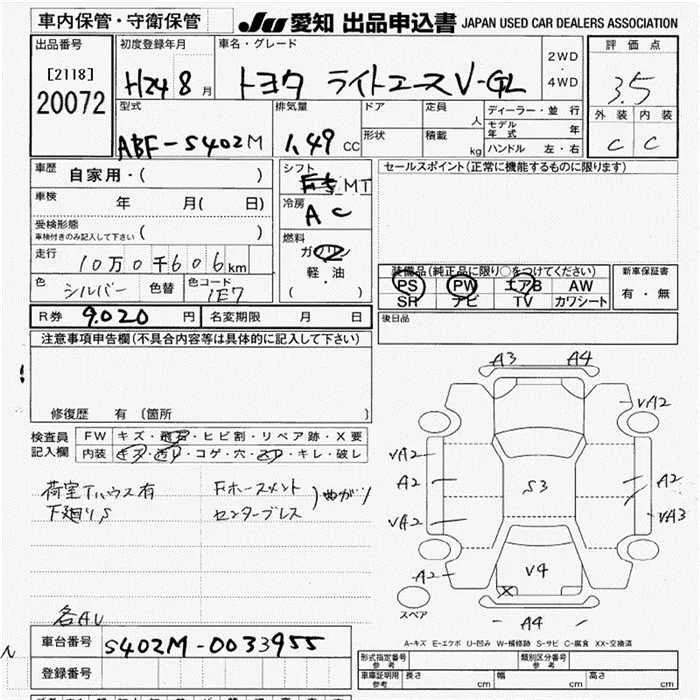 車内保管・守衛保管
JU 愛知 出品申込書 JAPAN USED CAR DEALERS ASSOCIATION
出品番号
[2118]
20072
初度登録年月
H24 8 月
車名・グレード
トヨタ ライトエース V-GL
2WD
・
4WD
評価点
3.5
外装 内装
C C
型式
ABF-S402M
排気量
1.49 CC
ドア
形状
定員
人
積載
kg
ディーラー・並行
モデル年式 年
ハンドル 左・右
車歴
自家用・( )
車検
年 月( 日)
受検形態
車検付きのみ記入して下さい ( )
走行
10万0千606km
色
シルバー 色替
色コード
1E7
シフト
MT
冷房
AC
燃料
ガソリン
軽・油
( )
セールスポイント(正常に機能するものに限ります)
装備品(純正品に限り○をつけてください)
PS PW エアB AW
SR ナビ TV カワシート
新車保証書
有・無
後日品
R券 9.020 円 名変期限 月 日
注意事項申告欄(不具合内容等は具体的に記入して下さい)
修復歴 有 〔箇所 〕
検査員
記入欄
FW キズ・飛石・ヒビ割・リペア跡・X要
内装 キズ・汚レ・コゲ・穴・スレ・キレ・破レ
荷室Tハウス有
下廻りS
Fホースメント
センターブレス
)曲がり
各AU
車台番号 S402M-0033955
登録番号
A3 A4
VA2
VA2
A2
VA2
S3
A2
VA3
A2
V4
A4
スペア
A-キズ E-エクボ U-凹み W-補修跡 S-サビ C-腐食 XX-交換済
形式指定番号 参考
類別区分番号 参考
車庫証明用 参考
長さ cm
幅 cm
高さ cm